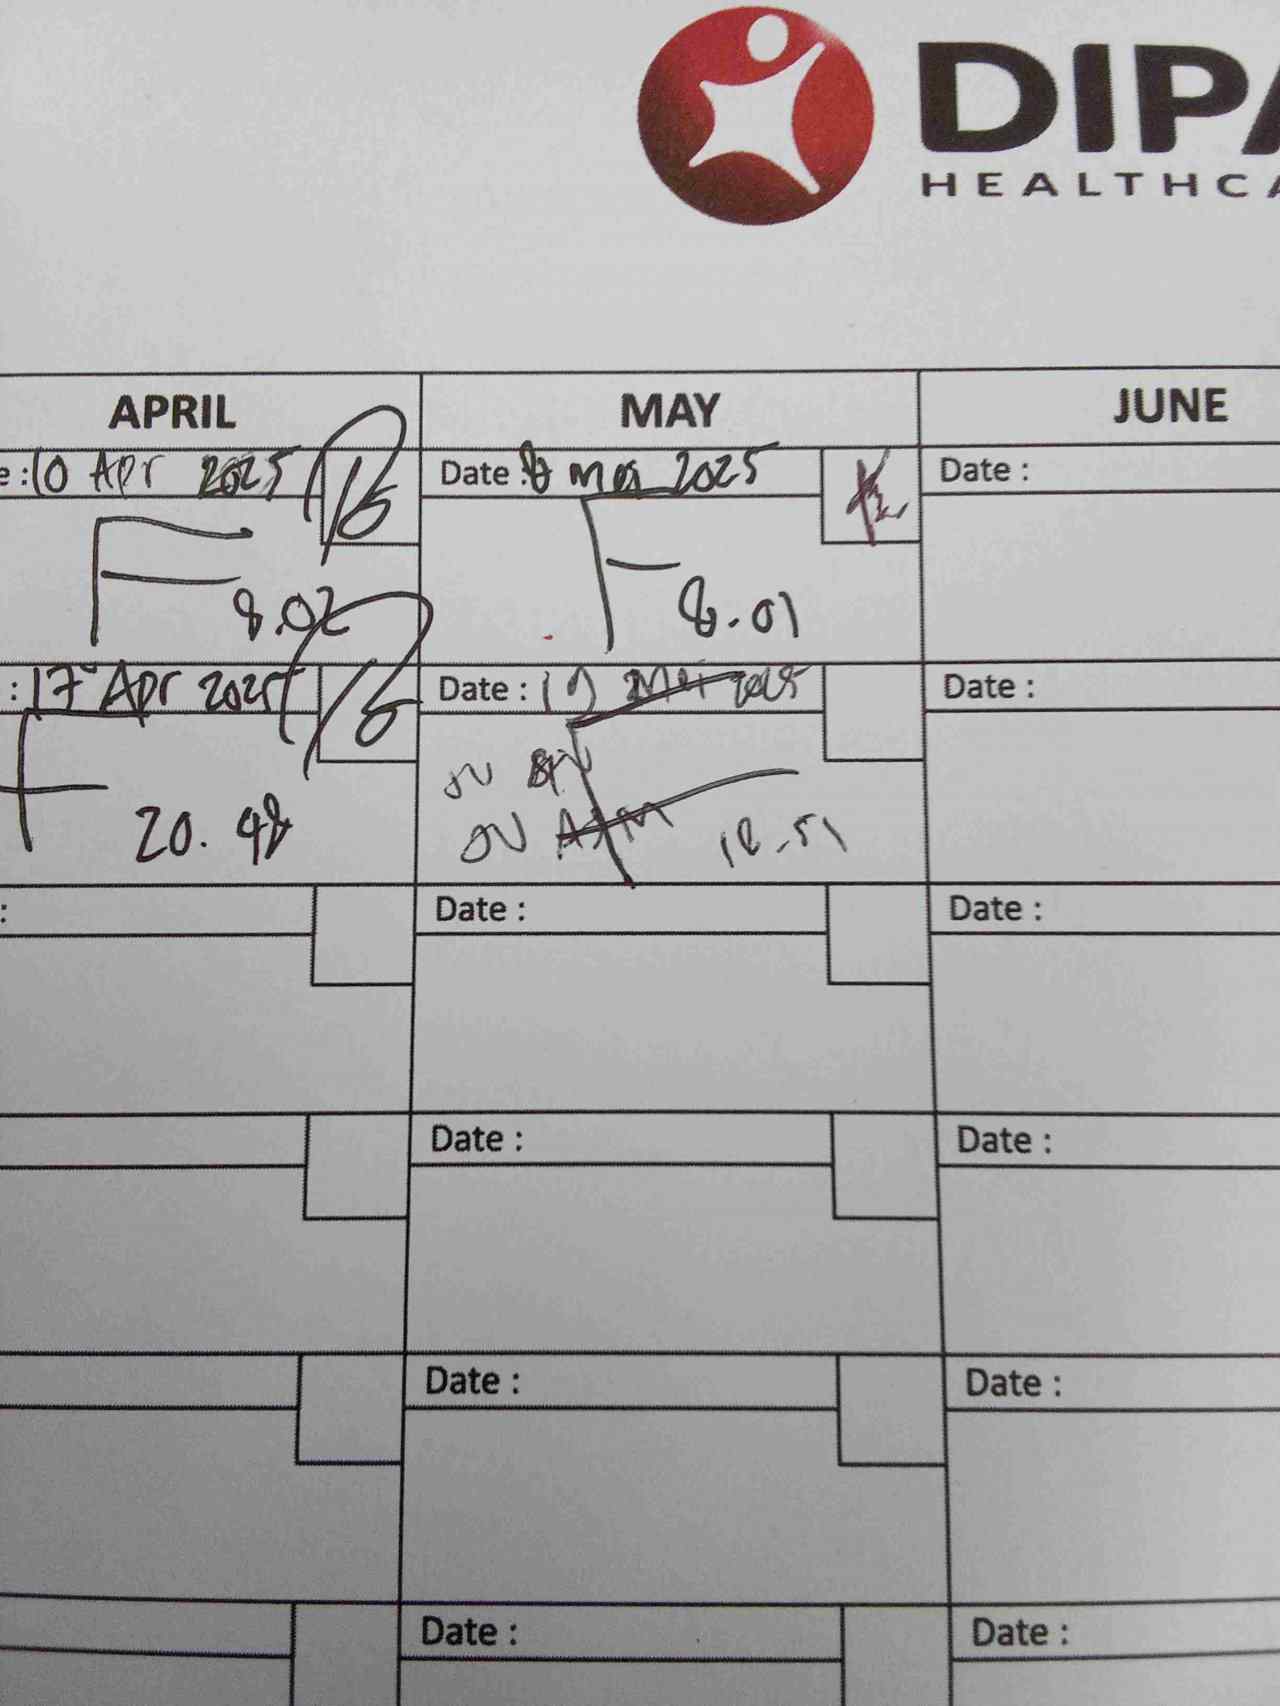 DIPA
HEALTHCA
APRIL MAY JUNE
e : 10 Apr 2025 Date : 8 Mei 2025 Date :
8.02 8.01
: 17 Apr 2025 Date : 19 Mei 2025 Date :
20.48 18.51
: Date : Date :
Date : Date :
Date : Date :
Date : Date :